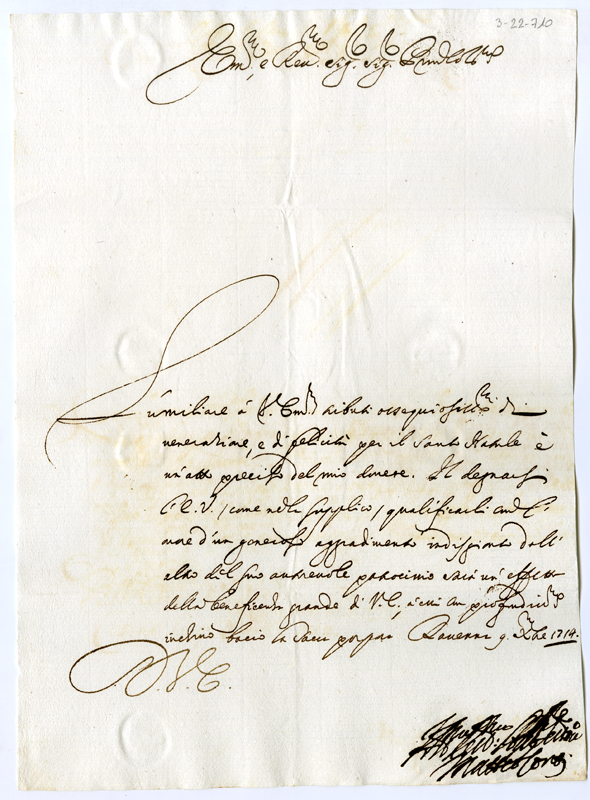 3-22-710
Em.mo, e Reu.mo Sig. Sig. Pron Col.mo
Vmiliare à V. Em.za tributi ossequiosiss.mi di
venerazione, e di felicità per il Santo Natale è
un'atto preciso del mio dovere. Il degnarsi
l'E. V., come nella supplico, qualificarli con l'o-
nore d'un generoso aggradimento indisgiunto dall'
alto del suo autorevole patrocinio sarà un'effetto
della beneficenza grande di V. E., à cui con profondiss.mo
inchino bacio la sacra porpora Rauenna 9 Xbre 1714.
D. V. E.
Matteo Conti